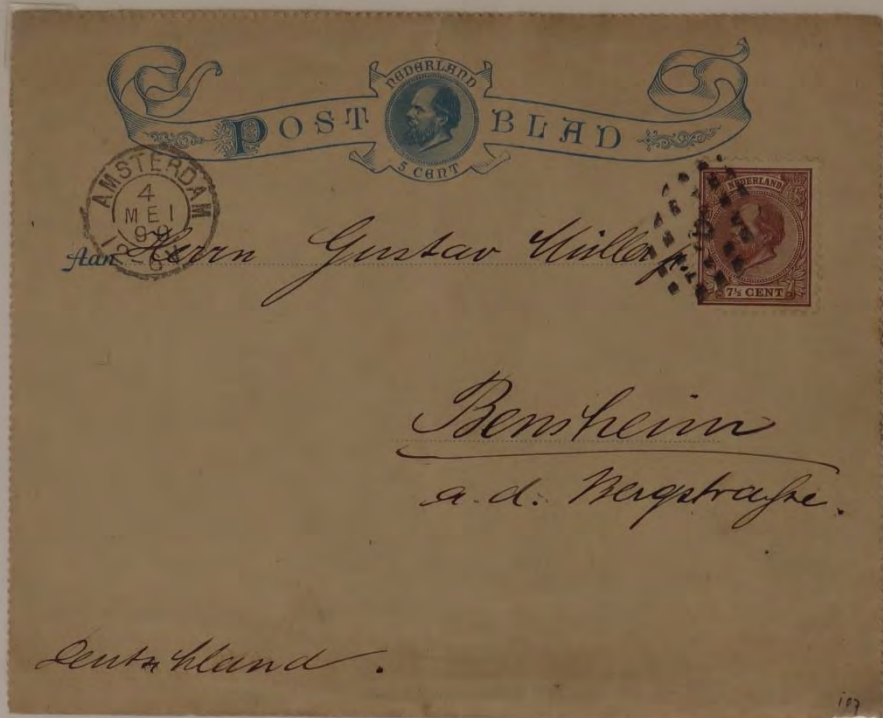 NEDERLAND
POST BLAD
5 CENT
AMSTERDAM
4
MEI
90
NEDERLAND
7½ CENT
Aan Herrn Gustav Müller jr.
Bensheim
a. d. Bergstraße.
Deutschland.
107